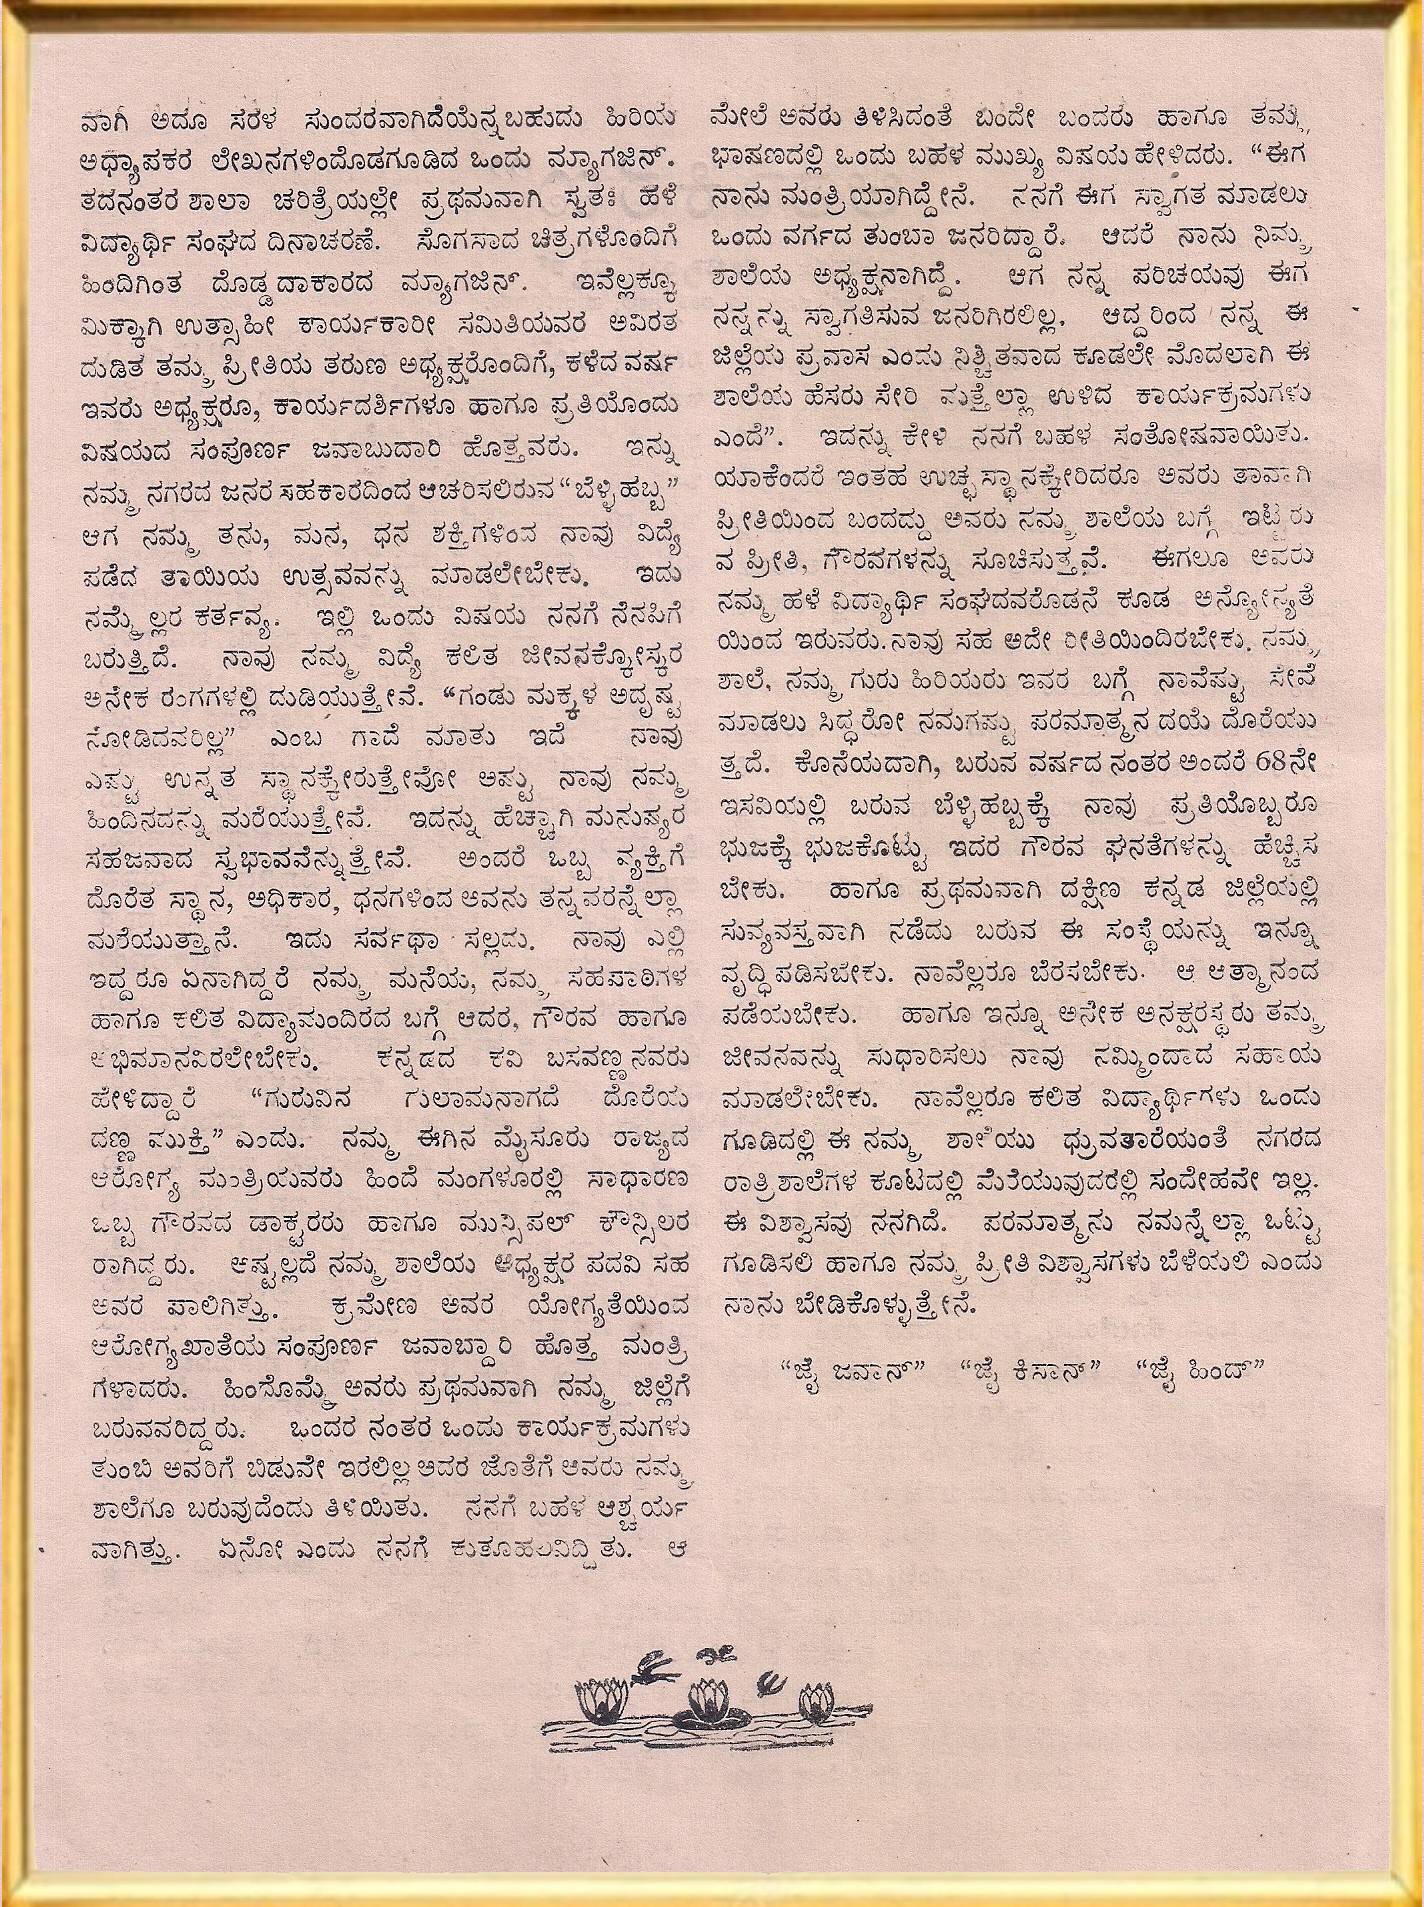 ವಾಗಿ ಅದೂ ಸರಳ ಸುಂದರವಾಗಿದೆಯೆನ್ನಬಹುದು ಹಿರಿಯ
ಅಧ್ಯಾಪಕರ ಲೇಖನಗಳಿಂದೊಡಗೂಡಿದ ಒಂದು ಮ್ಯಾಗಜಿನ್.
ತದನಂತರ ಶಾಲಾ ಚರಿತ್ರೆಯಲ್ಲೇ ಪ್ರಥಮವಾಗಿ ಸ್ವತಃ ಹಳೆ
ವಿದ್ಯಾರ್ಥಿ ಸಂಘದ ದಿನಾಚರಣೆ. ಸೊಗಸಾದ ಚಿತ್ರಗಳೊಂದಿಗೆ
ಹಿಂದಿಗಿಂತ ದೊಡ್ಡದಾಕಾರದ ಮ್ಯಾಗಜಿನ್. ಇವೆಲ್ಲಕ್ಕೂ
ಮಿಕ್ಕಾಗಿ ಉತ್ಸಾಹೀ ಕಾರ್ಯಕಾರೀ ಸಮಿತಿಯವರ ಅವಿರತ
ದುಡಿತ ತಮ್ಮ ಪ್ರೀತಿಯ ತರುಣ ಅಧ್ಯಕ್ಷರೊಂದಿಗೆ, ಕಳೆದ ವರ್ಷ
ಇವರು ಅಧ್ಯಕ್ಷರೂ, ಕಾರ್ಯದರ್ಶಿಗಳೂ ಹಾಗೂ ಪ್ರತಿಯೊಂದು
ವಿಷಯದ ಸಂಪೂರ್ಣ ಜವಾಬುದಾರಿ ಹೊತ್ತವರು. ಇನ್ನು
ನಮ್ಮ ನಗರದ ಜನರ ಸಹಕಾರದಿಂದ ಆಚರಿಸಲಿರುವ “ಬೆಳ್ಳಿಹಬ್ಬ”
ಆಗ ನಮ್ಮ ತನು, ಮನ, ಧನ ಶಕ್ತಿಗಳಿಂದ ನಾವು ವಿದ್ಯೆ
ಪಡೆದ ತಾಯಿಯ ಉತ್ಸವವನ್ನು ಮಾಡಲೇಬೇಕು. ಇದು
ನಮ್ಮೆಲ್ಲರ ಕರ್ತವ್ಯ. ಇಲ್ಲಿ ಒಂದು ವಿಷಯ ನನಗೆ ನೆನಪಿಗೆ
ಬರುತ್ತಿದೆ. ನಾವು ನಮ್ಮ ವಿದ್ಯೆ ಕಲಿತ ಜೀವನಕ್ಕೋಸ್ಕರ
ಅನೇಕ ರಂಗಗಳಲ್ಲಿ ದುಡಿಯುತ್ತೇವೆ. “ಗಂಡು ಮಕ್ಕಳ ಅದೃಷ್ಟ
ನೋಡಿದವರಿಲ್ಲ” ಎಂಬ ಗಾದೆ ಮಾತು ಇದೆ ನಾವು
ಎಷ್ಟು ಉನ್ನತ ಸ್ಥಾನಕ್ಕೇರುತ್ತೇವೋ ಅಷ್ಟು ನಾವು ನಮ್ಮ
ಹಿಂದಿನದನ್ನು ಮರೆಯುತ್ತೇವೆ. ಇದನ್ನು ಹೆಚ್ಚಾಗಿ ಮನುಷ್ಯರ
ಸಹಜವಾದ ಸ್ವಭಾವವೆನ್ನುತ್ತೇವೆ. ಅಂದರೆ ಒಬ್ಬ ವ್ಯಕ್ತಿಗೆ
ದೊರೆತ ಸ್ಥಾನ, ಅಧಿಕಾರ, ಧನಗಳಿಂದ ಅವನು ತನ್ನವರನ್ನೆಲ್ಲಾ
ಮರೆಯುತ್ತಾನೆ. ಇದು ಸರ್ವಥಾ ಸಲ್ಲದು. ನಾವು ಎಲ್ಲಿ
ಇದ್ದರೂ ಏನಾಗಿದ್ದರೆ ನಮ್ಮ ಮನೆಯ, ನಮ್ಮ ಸಹಪಾಠಿಗಳ
ಹಾಗೂ ಕಲಿತ ವಿದ್ಯಾಮಂದಿರದ ಬಗ್ಗೆ ಆದರ, ಗೌರವ ಹಾಗೂ
ಅಭಿಮಾನವಿರಲೇಬೇಕು. ಕನ್ನಡದ ಕವಿ ಬಸವಣ್ಣನವರು
ಹೇಳಿದ್ದಾರೆ “ಗುರುವಿನ ಗುಲಾಮನಾಗದೆ ದೊರೆಯ
ದಣ್ಣ ಮುಕ್ತಿ” ಎಂದು. ನಮ್ಮ ಈಗಿನ ಮೈಸೂರು ರಾಜ್ಯದ
ಆರೋಗ್ಯ ಮಂತ್ರಿಯವರು ಹಿಂದೆ ಮಂಗಳೂರಲ್ಲಿ ಸಾಧಾರಣ
ಒಬ್ಬ ಗೌರವದ ಡಾಕ್ಟರರು ಹಾಗೂ ಮುಸ್ಸಿಪಲ್ ಕೌನ್ಸಿಲರ
ರಾಗಿದ್ದರು. ಅಷ್ಟಲ್ಲದೆ ನಮ್ಮ ಶಾಲೆಯ ಅಧ್ಯಕ್ಷರ ಪದವಿ ಸಹ
ಅವರ ಪಾಲಿಗಿತ್ತು. ಕ್ರಮೇಣ ಅವರ ಯೋಗ್ಯತೆಯಿಂದ
ಆರೋಗ್ಯಖಾತೆಯ ಸಂಪೂರ್ಣ ಜವಾಬ್ದಾರಿ ಹೊತ್ತ ಮಂತ್ರಿ
ಗಳಾದರು. ಹಿಂದೊಮ್ಮೆ ಅವರು ಪ್ರಥಮವಾಗಿ ನಮ್ಮ ಜಿಲ್ಲೆಗೆ
ಬರುವವರಿದ್ದರು. ಒಂದರ ನಂತರ ಒಂದು ಕಾರ್ಯಕ್ರಮಗಳು
ತುಂಬಿ ಅವರಿಗೆ ಬಿಡುವೇ ಇರಲಿಲ್ಲ ಅದರ ಜೊತೆಗೆ ಅವರು ನಮ್ಮ
ಶಾಲೆಗೂ ಬರುವುದೆಂದು ತಿಳಿಯಿತು. ನನಗೆ ಬಹಳ ಆಶ್ಚರ್ಯ
ವಾಗಿತ್ತು. ಏನೋ ಎಂದು ನನಗೆ ಕುತೂಹಲವಿದ್ದಿತು. ಆ
ಮೇಲೆ ಅವರು ತಿಳಿಸಿದಂತೆ ಬಂದೇ ಬಂದರು ಹಾಗೂ ತಮ್ಮ
ಭಾಷಣದಲ್ಲಿ ಒಂದು ಬಹಳ ಮುಖ್ಯ ವಿಷಯ ಹೇಳಿದರು. “ಈಗ
ನಾನು ಮಂತ್ರಿಯಾಗಿದ್ದೇನೆ. ನನಗೆ ಈಗ ಸ್ವಾಗತ ಮಾಡಲು
ಒಂದು ವರ್ಗದ ತುಂಬಾ ಜನರಿದ್ದಾರೆ. ಆದರೆ ನಾನು ನಿಮ್ಮ
ಶಾಲೆಯ ಅಧ್ಯಕ್ಷನಾಗಿದ್ದೆ. ಆಗ ನನ್ನ ಪರಿಚಯವು ಈಗ
ನನ್ನನ್ನು ಸ್ವಾಗತಿಸುವ ಜನರಿಗಿರಲಿಲ್ಲ. ಆದ್ದರಿಂದ ನನ್ನ ಈ
ಜಿಲ್ಲೆಯ ಪ್ರವಾಸ ಎಂದು ನಿಶ್ಚಿತವಾದ ಕೂಡಲೇ ಮೊದಲಾಗಿ ಈ
ಶಾಲೆಯ ಹೆಸರು ಸೇರಿ ಮತ್ತೆಲ್ಲಾ ಉಳಿದ ಕಾರ್ಯಕ್ರಮಗಳು
ಎಂದೆ”. ಇದನ್ನು ಕೇಳಿ ನನಗೆ ಬಹಳ ಸಂತೋಷವಾಯಿತು.
ಯಾಕೆಂದರೆ ಇಂತಹ ಉಚ್ಛಸ್ಥಾನಕ್ಕೇರಿದರೂ ಅವರು ತಾವಾಗಿ
ಪ್ರೀತಿಯಿಂದ ಬಂದದ್ದು ಅವರು ನಮ್ಮ ಶಾಲೆಯ ಬಗ್ಗೆ ಇಟ್ಟಿರು
ವ ಪ್ರೀತಿ, ಗೌರವಗಳನ್ನು ಸೂಚಿಸುತ್ತವೆ. ಈಗಲೂ ಅವರು
ನಮ್ಮ ಹಳೆ ವಿದ್ಯಾರ್ಥಿ ಸಂಘದವರೊಡನೆ ಕೂಡ ಅನ್ಯೋನ್ಯತೆ
ಯಿಂದ ಇರುವರು. ನಾವು ಸಹ ಅದೇ ರೀತಿಯಿಂದಿರಬೇಕು. ನಮ್ಮ
ಶಾಲೆ, ನಮ್ಮ ಗುರು ಹಿರಿಯರು ಇವರ ಬಗ್ಗೆ ನಾವೆಷ್ಟು ಸೇವೆ
ಮಾಡಲು ಸಿದ್ಧರೋ ನಮಗಷ್ಟು ಪರಮಾತ್ಮನ ದಯೆ ದೊರೆಯು
ತ್ತದೆ. ಕೊನೆಯದಾಗಿ, ಬರುವ ವರ್ಷದ ನಂತರ ಅಂದರೆ 68ನೇ
ಇಸವಿಯಲ್ಲಿ ಬರುವ ಬೆಳ್ಳಿಹಬ್ಬಕ್ಕೆ ನಾವು ಪ್ರತಿಯೊಬ್ಬರೂ
ಭುಜಕ್ಕೆ ಭುಜಕೊಟ್ಟು ಇದರ ಗೌರವ ಘನತೆಗಳನ್ನು ಹೆಚ್ಚಿಸ
ಬೇಕು. ಹಾಗೂ ಪ್ರಥಮವಾಗಿ ದಕ್ಷಿಣ ಕನ್ನಡ ಜಿಲ್ಲೆಯಲ್ಲಿ
ಸುವ್ಯವಸ್ತವಾಗಿ ನಡೆದು ಬರುವ ಈ ಸಂಸ್ಥೆಯನ್ನು ಇನ್ನೂ
ವೃದ್ಧಿಪಡಿಸಬೇಕು. ನಾವೆಲ್ಲರೂ ಬೆರಸಬೇಕು. ಆ ಆತ್ಮಾನಂದ
ಪಡೆಯಬೇಕು. ಹಾಗೂ ಇನ್ನೂ ಅನೇಕ ಅನಕ್ಷರಸ್ಥರು ತಮ್ಮ
ಜೀವನವನ್ನು ಸುಧಾರಿಸಲು ನಾವು ನಮ್ಮಿಂದಾದ ಸಹಾಯ
ಮಾಡಲೇಬೇಕು. ನಾವೆಲ್ಲರೂ ಕಲಿತ ವಿದ್ಯಾರ್ಥಿಗಳು ಒಂದು
ಗೂಡಿದಲ್ಲಿ ಈ ನಮ್ಮ ಶಾಲೆಯು ಧ್ರುವತಾರೆಯಂತೆ ನಗರದ
ರಾತ್ರಿಶಾಲೆಗಳ ಕೂಟದಲ್ಲಿ ಮೆರೆಯುವುದರಲ್ಲಿ ಸಂದೇಹವೇ ಇಲ್ಲ.
ಈ ವಿಶ್ವಾಸವು ನನಗಿದೆ. ಪರಮಾತ್ಮನು ನಮನ್ನೆಲ್ಲಾ ಒಟ್ಟು
ಗೂಡಿಸಲಿ ಹಾಗೂ ನಮ್ಮ ಪ್ರೀತಿ ವಿಶ್ವಾಸಗಳು ಬೆಳೆಯಲಿ ಎಂದು
ನಾನು ಬೇಡಿಕೊಳ್ಳುತ್ತೇನೆ.
“ಜೈ ಜವಾನ್” “ಜೈ ಕಿಸಾನ್” “ಜೈ ಹಿಂದ್”